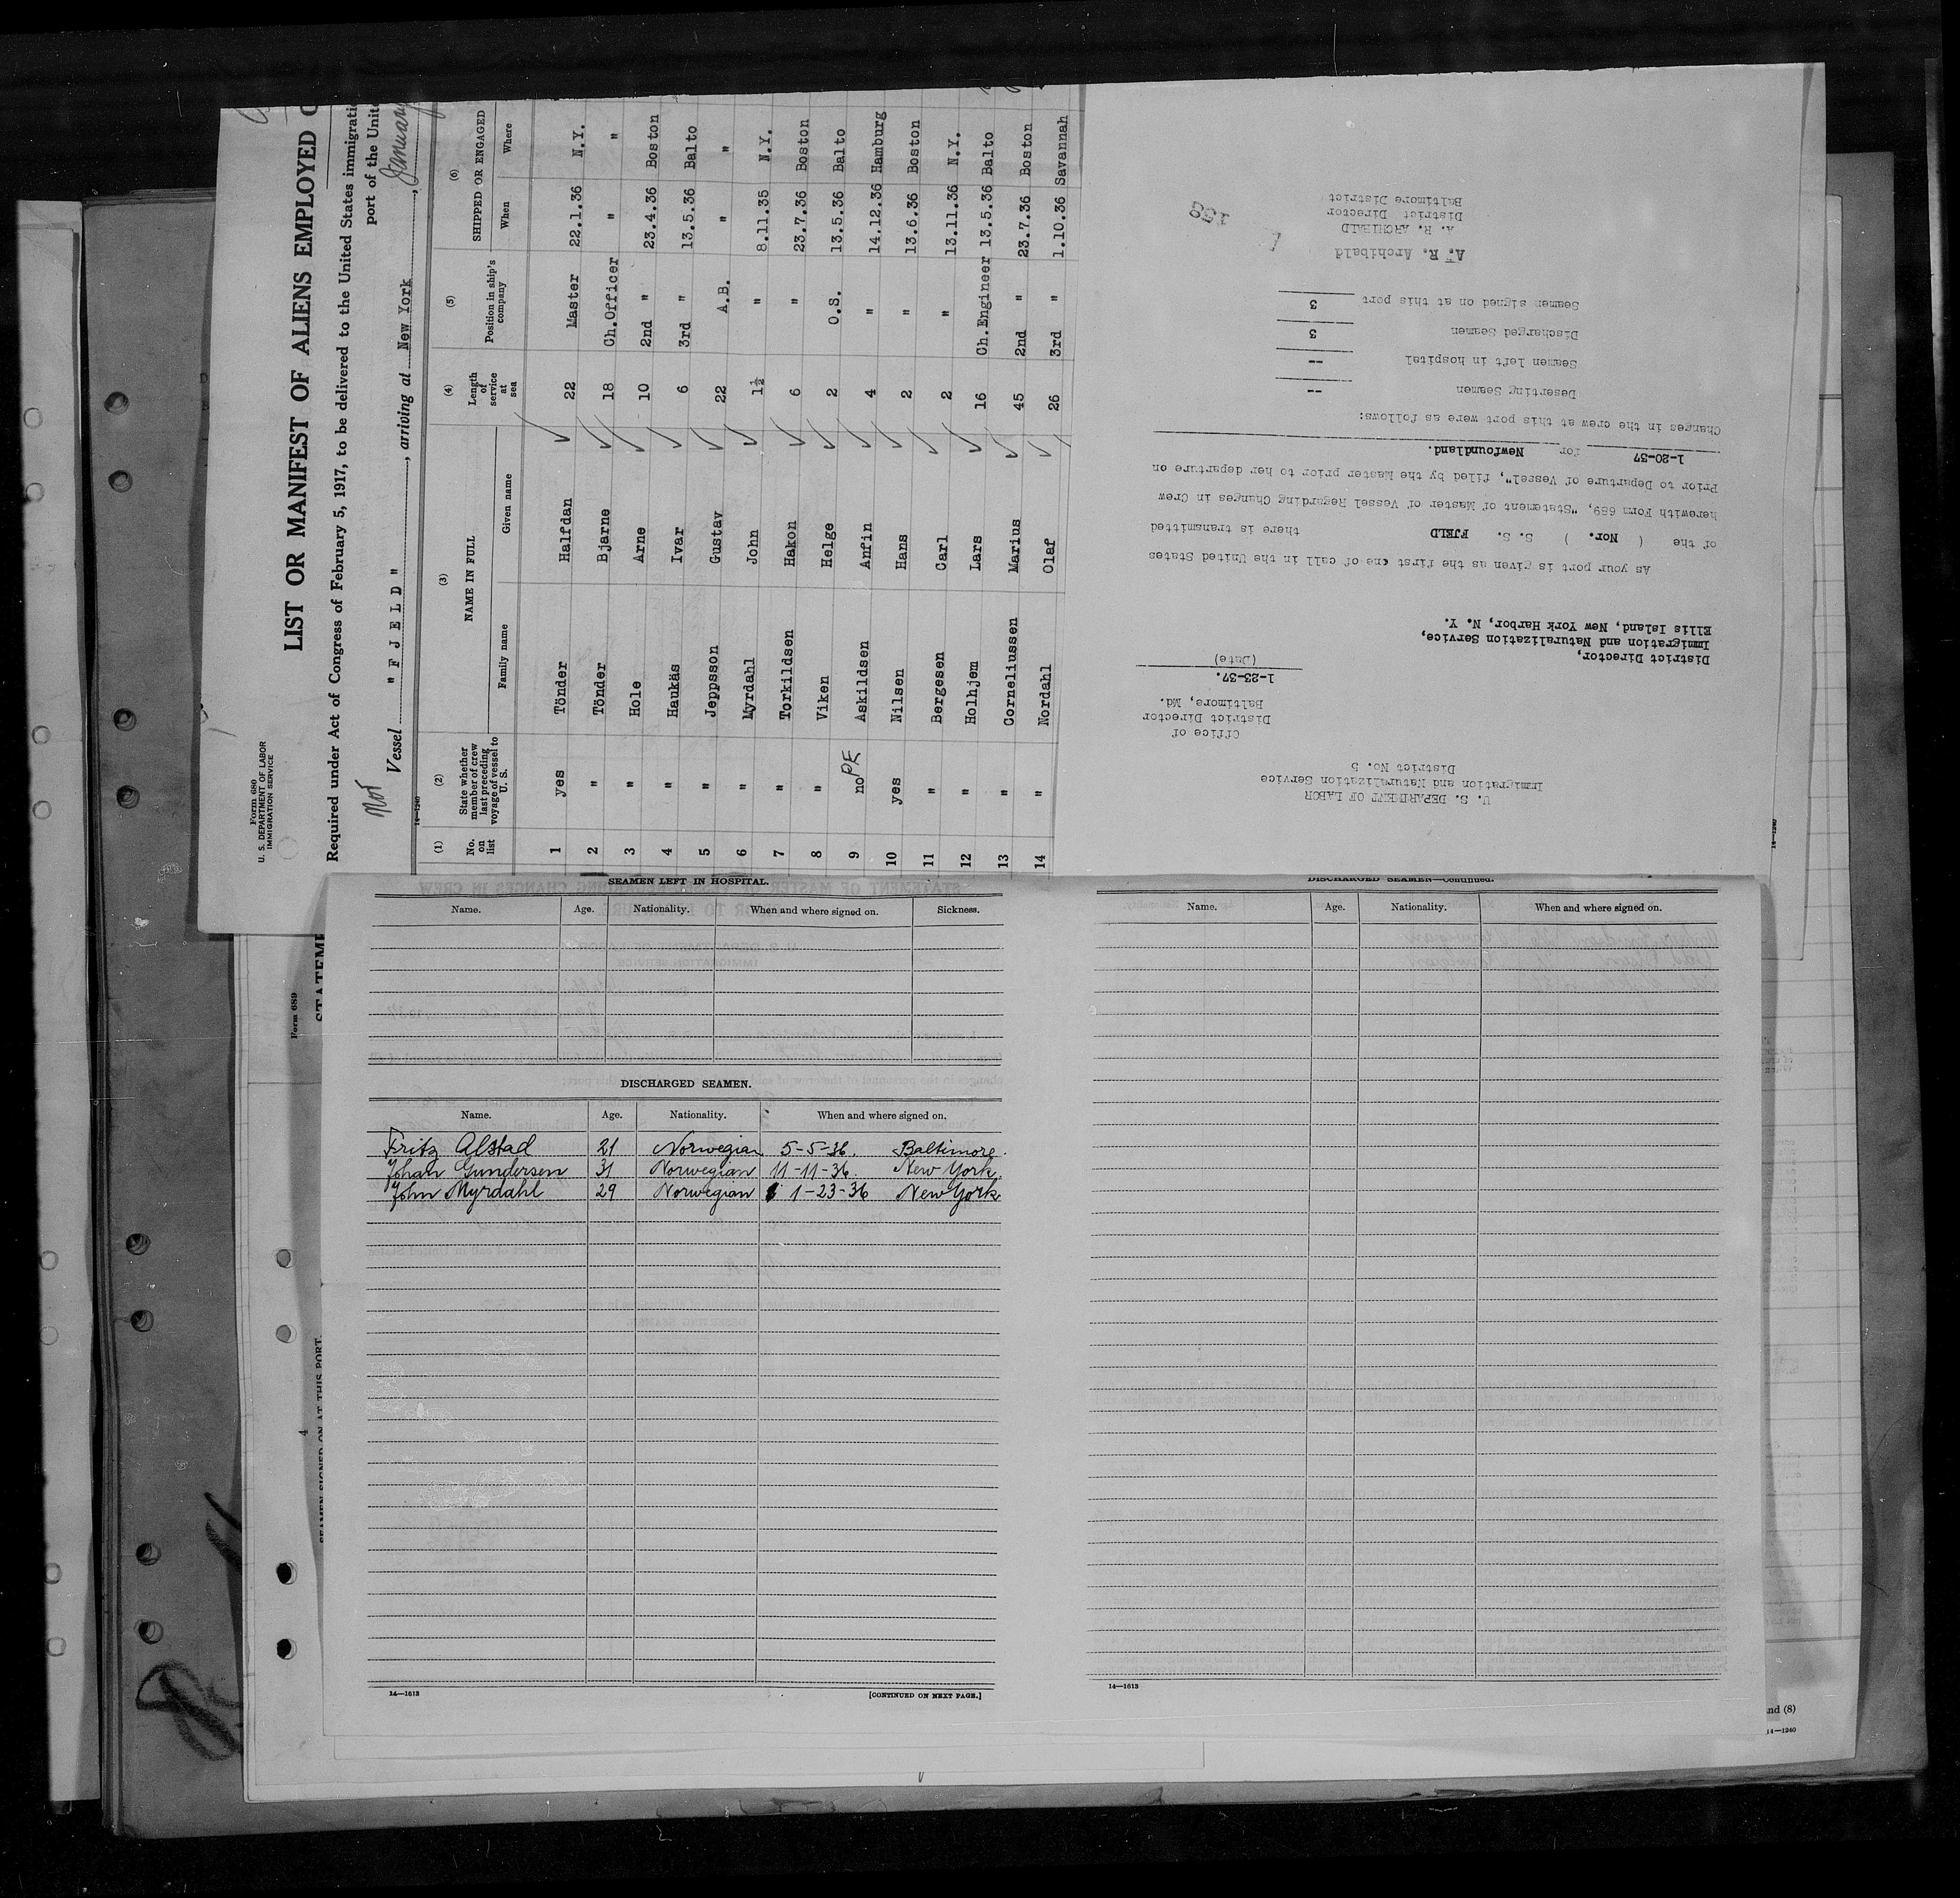 Form 680
U. S. DEPARTMENT OF LABOR
IMMIGRATION SERVICE
LIST OR MANIFEST OF ALIENS EMPLOYED
Required under Act of Congress of February 5, 1917, to be delivered to the United States
port of the
Nor
Vessel " F J E L D ", arriving at New York, January
14—1240
(1) (2) (3) (4) (5) (6)
No. on list
State whether member of crew last preceding voyage of vessel to U. S.
NAME IN FULL
Family name Given name
Length of service at sea
Position in ship's company
SHIPPED OR ENGAGED
When Where
1 yes Tönder Halfdan 22 Master 22.1.36 N.Y.
2 " Tönder Bjarne 18 Ch.Officer " "
3 " Hole Arne 10 2nd " 23.4.36 Boston
4 " Haukäs Ivar 6 3rd " 13.5.36 Balto
5 " Jeppsson Gustav 22 A.B. " "
6 " Myrdahl John 1½ " 8.11.35 N.Y.
7 " Torkildsen Hakon 6 " 23.7.36 Boston
8 " Viken Helge 2 O.S. 13.5.36 Balto
9 no PE Askildsen Anfin 4 " 14.12.36 Hamburg
10 yes Nilsen Hans 2 " 13.6.36 Boston
11 " Bergesen Carl 2 " 13.11.36 N.Y.
12 " Holhjem Lars 16 Ch.Engineer 13.5.36 Balto
13 " Corneliussen Marius 45 2nd " 23.7.36 Boston
14 " Nordahl Olaf 26 3rd " 1.10.36 Savannah
U. S. DEPARTMENT OF LABOR
Immigration and Naturalization Service
District No. 5
Office of
District Director
Baltimore, Md.
1-23-37.
(Date)
District Director,
Immigration and Naturalization Service,
Ellis Island, New York Harbor, N. Y.
As your port is given as the first one of call in the United States
of the ( Nor. ) S. S. FJELD there is transmitted
herewith Form 689, "Statement of Master of Vessel Regarding Changes in Crew
Prior to Departure of Vessel", filed by the Master prior to her departure on
1-20-37 for Newfoundland.
Changes in the crew at this port were as follows:
Deserting Seamen --
Seamen left in hospital --
Discharged Seamen 3
Seamen signed on at this port 3
A. R. Archibald
A. R. ARCHIBALD
District Director
Baltimore District
138
14—1240
Form 689
4
SEAMEN SIGNED ON AT THIS PORT.
SEAMEN LEFT IN HOSPITAL.
Name. Age. Nationality. When and where signed on. Sickness.
DISCHARGED SEAMEN.
Name. Age. Nationality. When and where signed on.
Fritz Alstad 21 Norwegian 5-5-36. Baltimore.
Johan Gundersen 31 Norwegian 11-11-36. New York.
John Myrdahl 29 Norwegian 1-23-36 New York
14—1613
[CONTINUED ON NEXT PAGE.]
DISCHARGED SEAMEN—Continued.
Name. Age. Nationality. When and where signed on.
14—1613
and (8)
14—1240